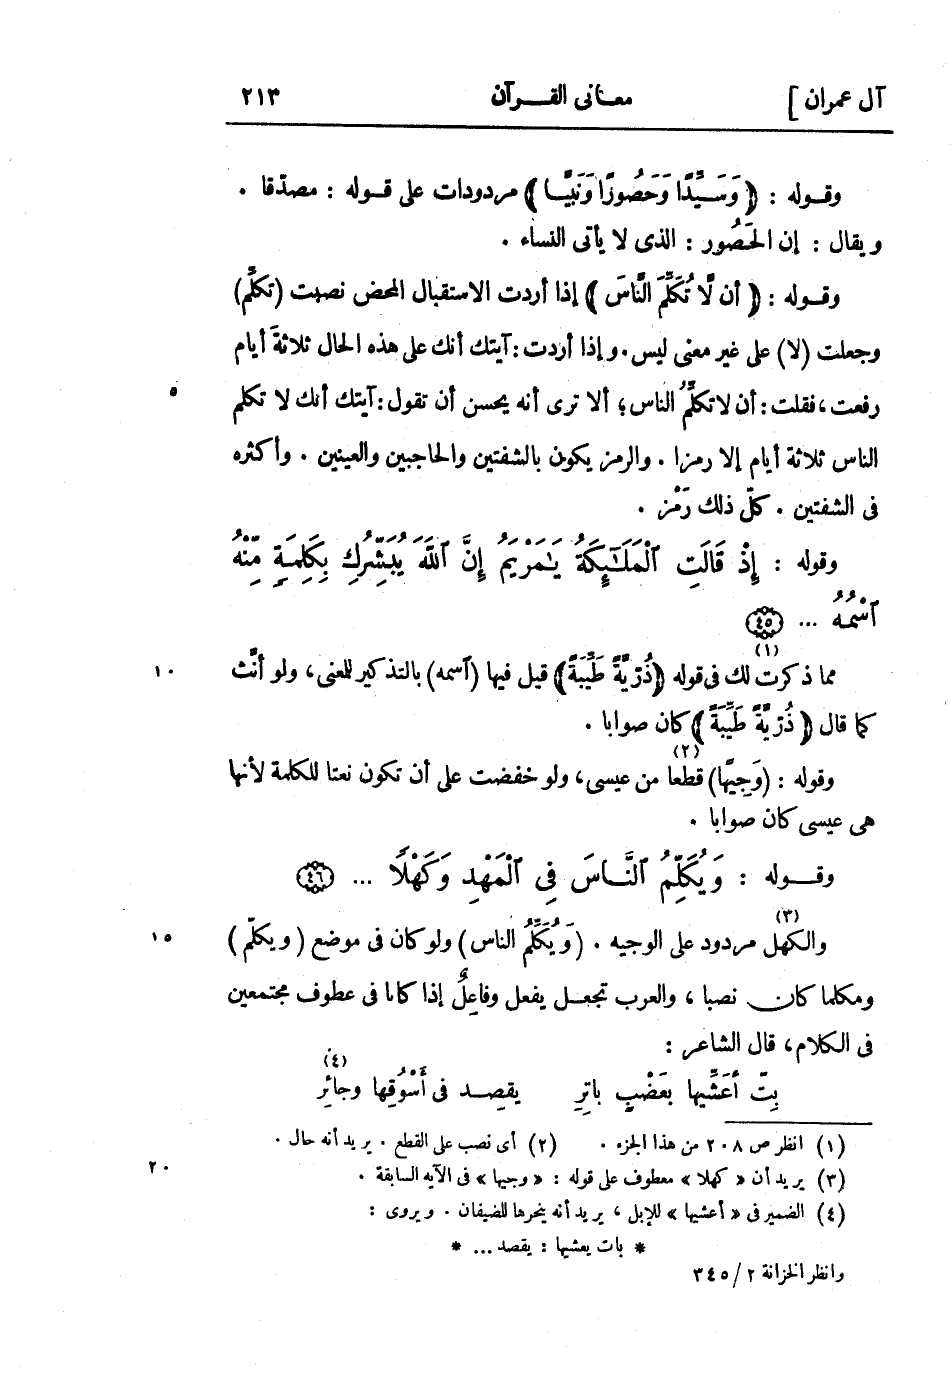 آل عمران ] معانى القرآن ٢١٣
وقوله : ﴿ وَسَيِّدًا وَحَصُورًا وَنَبِيًّا ﴾ مردودات على قوله : مصدّقا .
ويقال : إن الحَصُور : الذى لا يأتى النساء .
وقوله : ﴿ أن لَّا تُكَلِّمَ النَّاسَ ﴾ إذا أردت الاستقبال المحض نصبت (تكلَّم)
وجعلت (لا) على غير معنى ليس . وإذا أردت : آيتك أنك على هذه الحال ثلاثةَ أيام
رفعت ، فقلت : أن لا تكلِّمُ الناس ؛ ألا ترى أنه يحسن أن تقول : آيتك أنك لا تكلم ٥
الناس ثلاثة أيام إلا رمزا . والرمز يكون بالشفتين والحاجبين والعينين . وأكثره
فى الشفتين . كلّ ذلك رَمْز .
وقوله : إِذْ قَالَتِ ٱلْمَلَـٰٓئِكَةُ يَـٰمَرْيَمُ إِنَّ ٱللَّهَ يُبَشِّرُكِ بِكَلِمَةٍ مِّنْهُ
ٱسْمُهُ ... (٤٥)
مما ذكرت لك فى قوله ﴿ ذُرِّيَّةً طَيِّبَةً ﴾ (١) قيل فيها (ٱسمه) بالتذكير للمعنى ، ولو أنَّث ١٠
كما قال ﴿ ذُرِّيَّةً طَيِّبَةً ﴾ كان صوابا .
وقوله : (وَجِيهًا) قطعا (٢) من عيسى ، ولو خفضت على أن تكون نعتا للكلمة لأنها
هى عيسى كان صوابا .
وقوله : وَيُكَلِّمُ ٱلنَّاسَ فِى ٱلْمَهْدِ وَكَهْلًا ... (٤٦)
والكهل (٣) مردود على الوجيه . (وَيُكَلِّمُ الناس) ولو كان فى موضع (ويكلّم) ١٥
ومكلما كان نصبا ، والعرب تجعل يفعل وفاعِلٌ إذا كانا فى عطوف مجتمعين
فى الكلام ، قال الشاعر :
بِتّ أعَشِّيها بعَضْبٍ باتِرِ يقصِد فى أَسْوُقِها وجائِرِ (٤)
(١) انظر ص ٢٠٨ من هذا الجزء . (٢) أى نصب على القطع . يريد أنه حال .
(٣) يريد أن « كهلا » معطوف على قوله : « وجيها » فى الآيه السابقة . ٢٠
(٤) الضمير فى « أعشيها » للإبل ، يريد أنه ينحرها للضيفان . ويروى :
* بات يعشيها : يقصد ... *
وانظر الخزانة ٢/٣٤٥